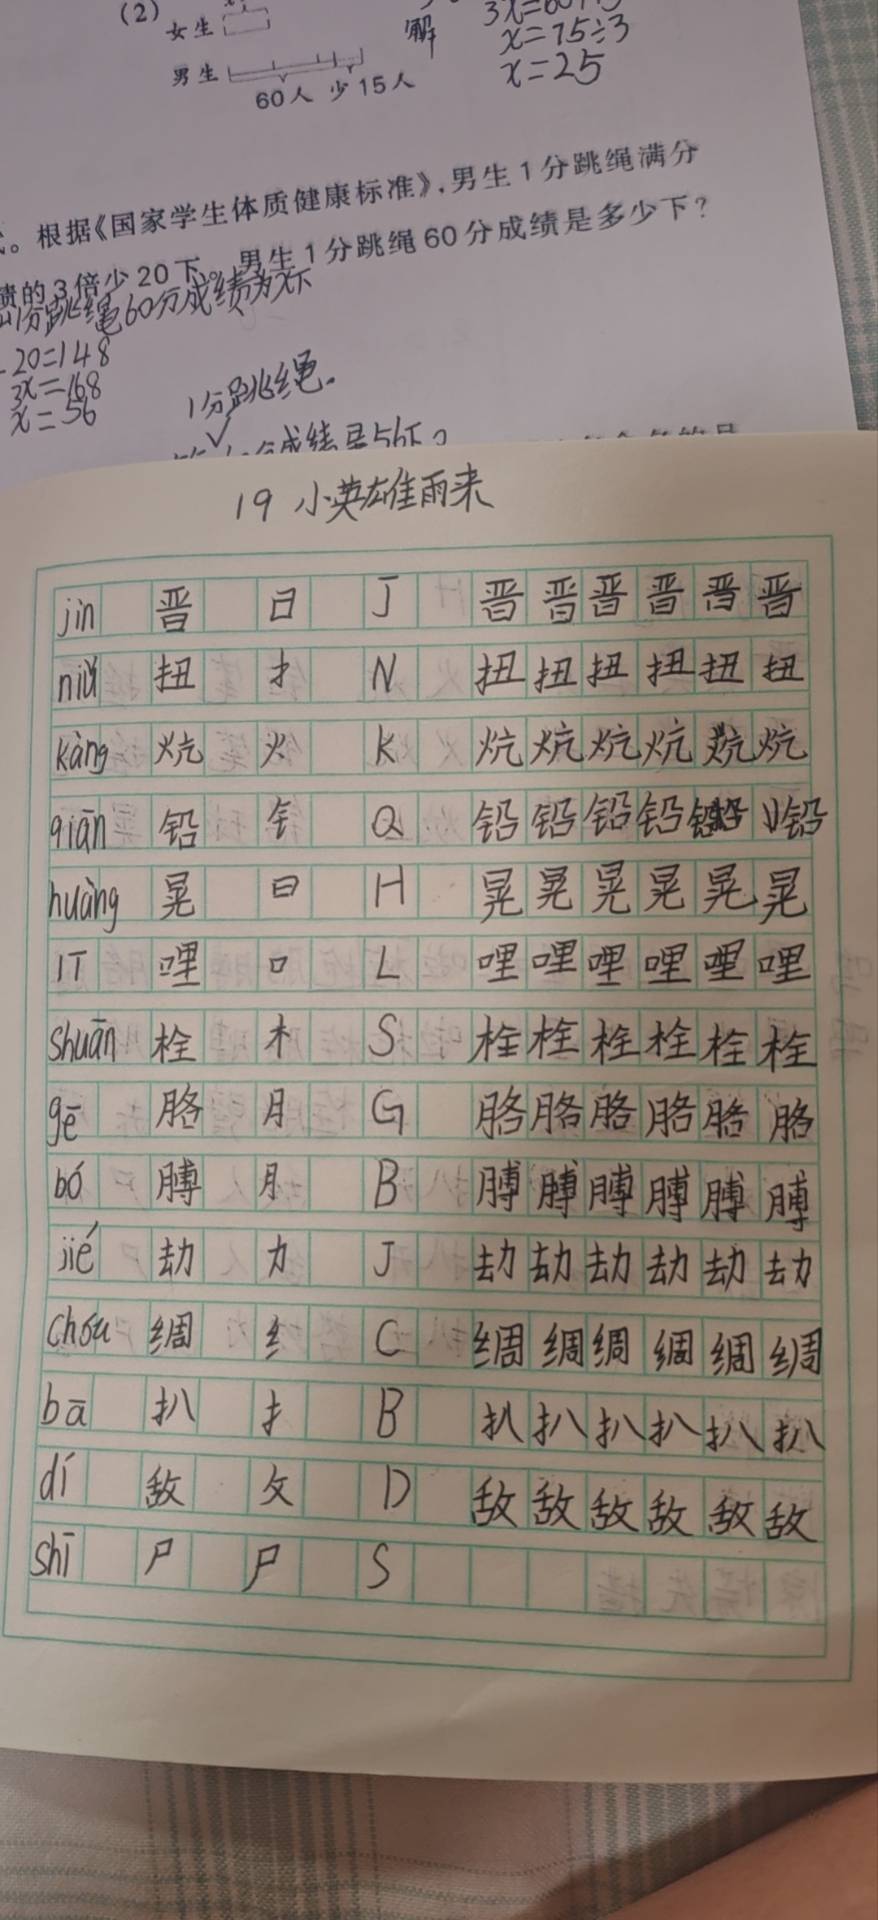 (2)
女生
解
3x=60+15
x=75÷3
男生
x=25
60人 少15人
。根据《国家学生体质健康标准》,男生1分跳绳满分
绩的3倍少20下。男生1分跳绳60分成绩是多少下?
1分跳绳60分成绩为x下
-20=148
3x=168
x=56
1分跳绳。
19 小英雄雨来
jìn 晋 日 J 晋 晋 晋 晋 晋 晋
niǔ 扭 扌 N 扭 扭 扭 扭 扭 扭
kàng 炕 火 K 炕 炕 炕 炕 炕 炕
qiān 铅 钅 Q 铅 铅 铅 铅 铅
huàng 晃 日 H 晃 晃 晃 晃 晃 晃
lī 哩 口 L 哩 哩 哩 哩 哩 哩
shuān 栓 木 S 栓 栓 栓 栓 栓 栓
gē 胳 月 G 胳 胳 胳 胳 胳 胳
bó 膊 月 B 膊 膊 膊 膊 膊 膊
jié 劫 力 J 劫 劫 劫 劫 劫 劫
chóu 绸 纟 C 绸 绸 绸 绸 绸 绸
bā 扒 扌 B 扒 扒 扒 扒 扒 扒
dí 敌 攵 D 敌 敌 敌 敌 敌 敌
shī 尸 尸 S